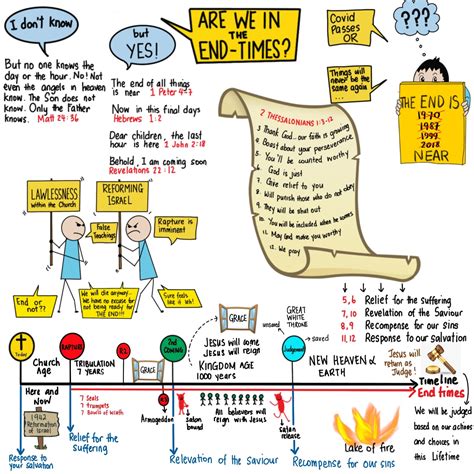 I don't know
But no one knows the
day or the hour. No! Not
even the angels in heaven
know. The Son does not
know. Only the Father
knows. Matt 24:36
but
YES!
The end of all things
is near 1 Peter 4-7
Now in this final days
Hebrews 1:2
Dear children, the last
hour is here 1 John 2:18
Behold, I am coming soon
Revelations 22:12
ARE WE IN
THE
END-TIMES?
Covid
Passes
OR
Things will
never be the
same again
...
???
THE END IS
1970
1987
1999
2018
NEAR
2 THESSALONIANS 1:3-12
3 Thank God - our faith is growing
4 Boast about your perseverance
5 You'll be counted worthy
God is just
7 Give relief to you
8 Will punish those who do not obey
9 They will be shut out
10 You will be included when he comes
11 May God make you worthy
12 We pray
LAWLESSNESS
Within the Church
REFORMING
ISRAEL
False
Teachings
Rapture is
imminent
End or
not??
We will die anyway.
We have no excuse for
not being ready for
THE END!!!
Sure feels
like it lah!
5, 6 Relief for the suffering
7, 10 Revelation of the Saviour
8, 9 Recompense for our sins
11, 12 Response to our salvation
Today
Church
Age
RAPTURE
TRIBULATION
7 YEARS
GRACE
2ND
COMING
GRACE
Jesus will come
Jesus will reign
KINGDOM AGE
1000 years
GREAT
WHITE
THRONE
saved
Judgement
NEW HEAVEN &
EARTH
Jesus will
return as
Judge!
Timeline
End times
Here and
Now
1942
Reformation
of Israel
7 Seals
7 Trumpets
7 Bowls of Wrath
Armageddon
satan
bound
All believers will
reign with Jesus
satan
release
Lake of fire
We will be judged
based on our actions
and choices in
this Lifetime
Response to
your salvation
Relief for the
suffering
Relevation of the Saviour
Recompense for our sins